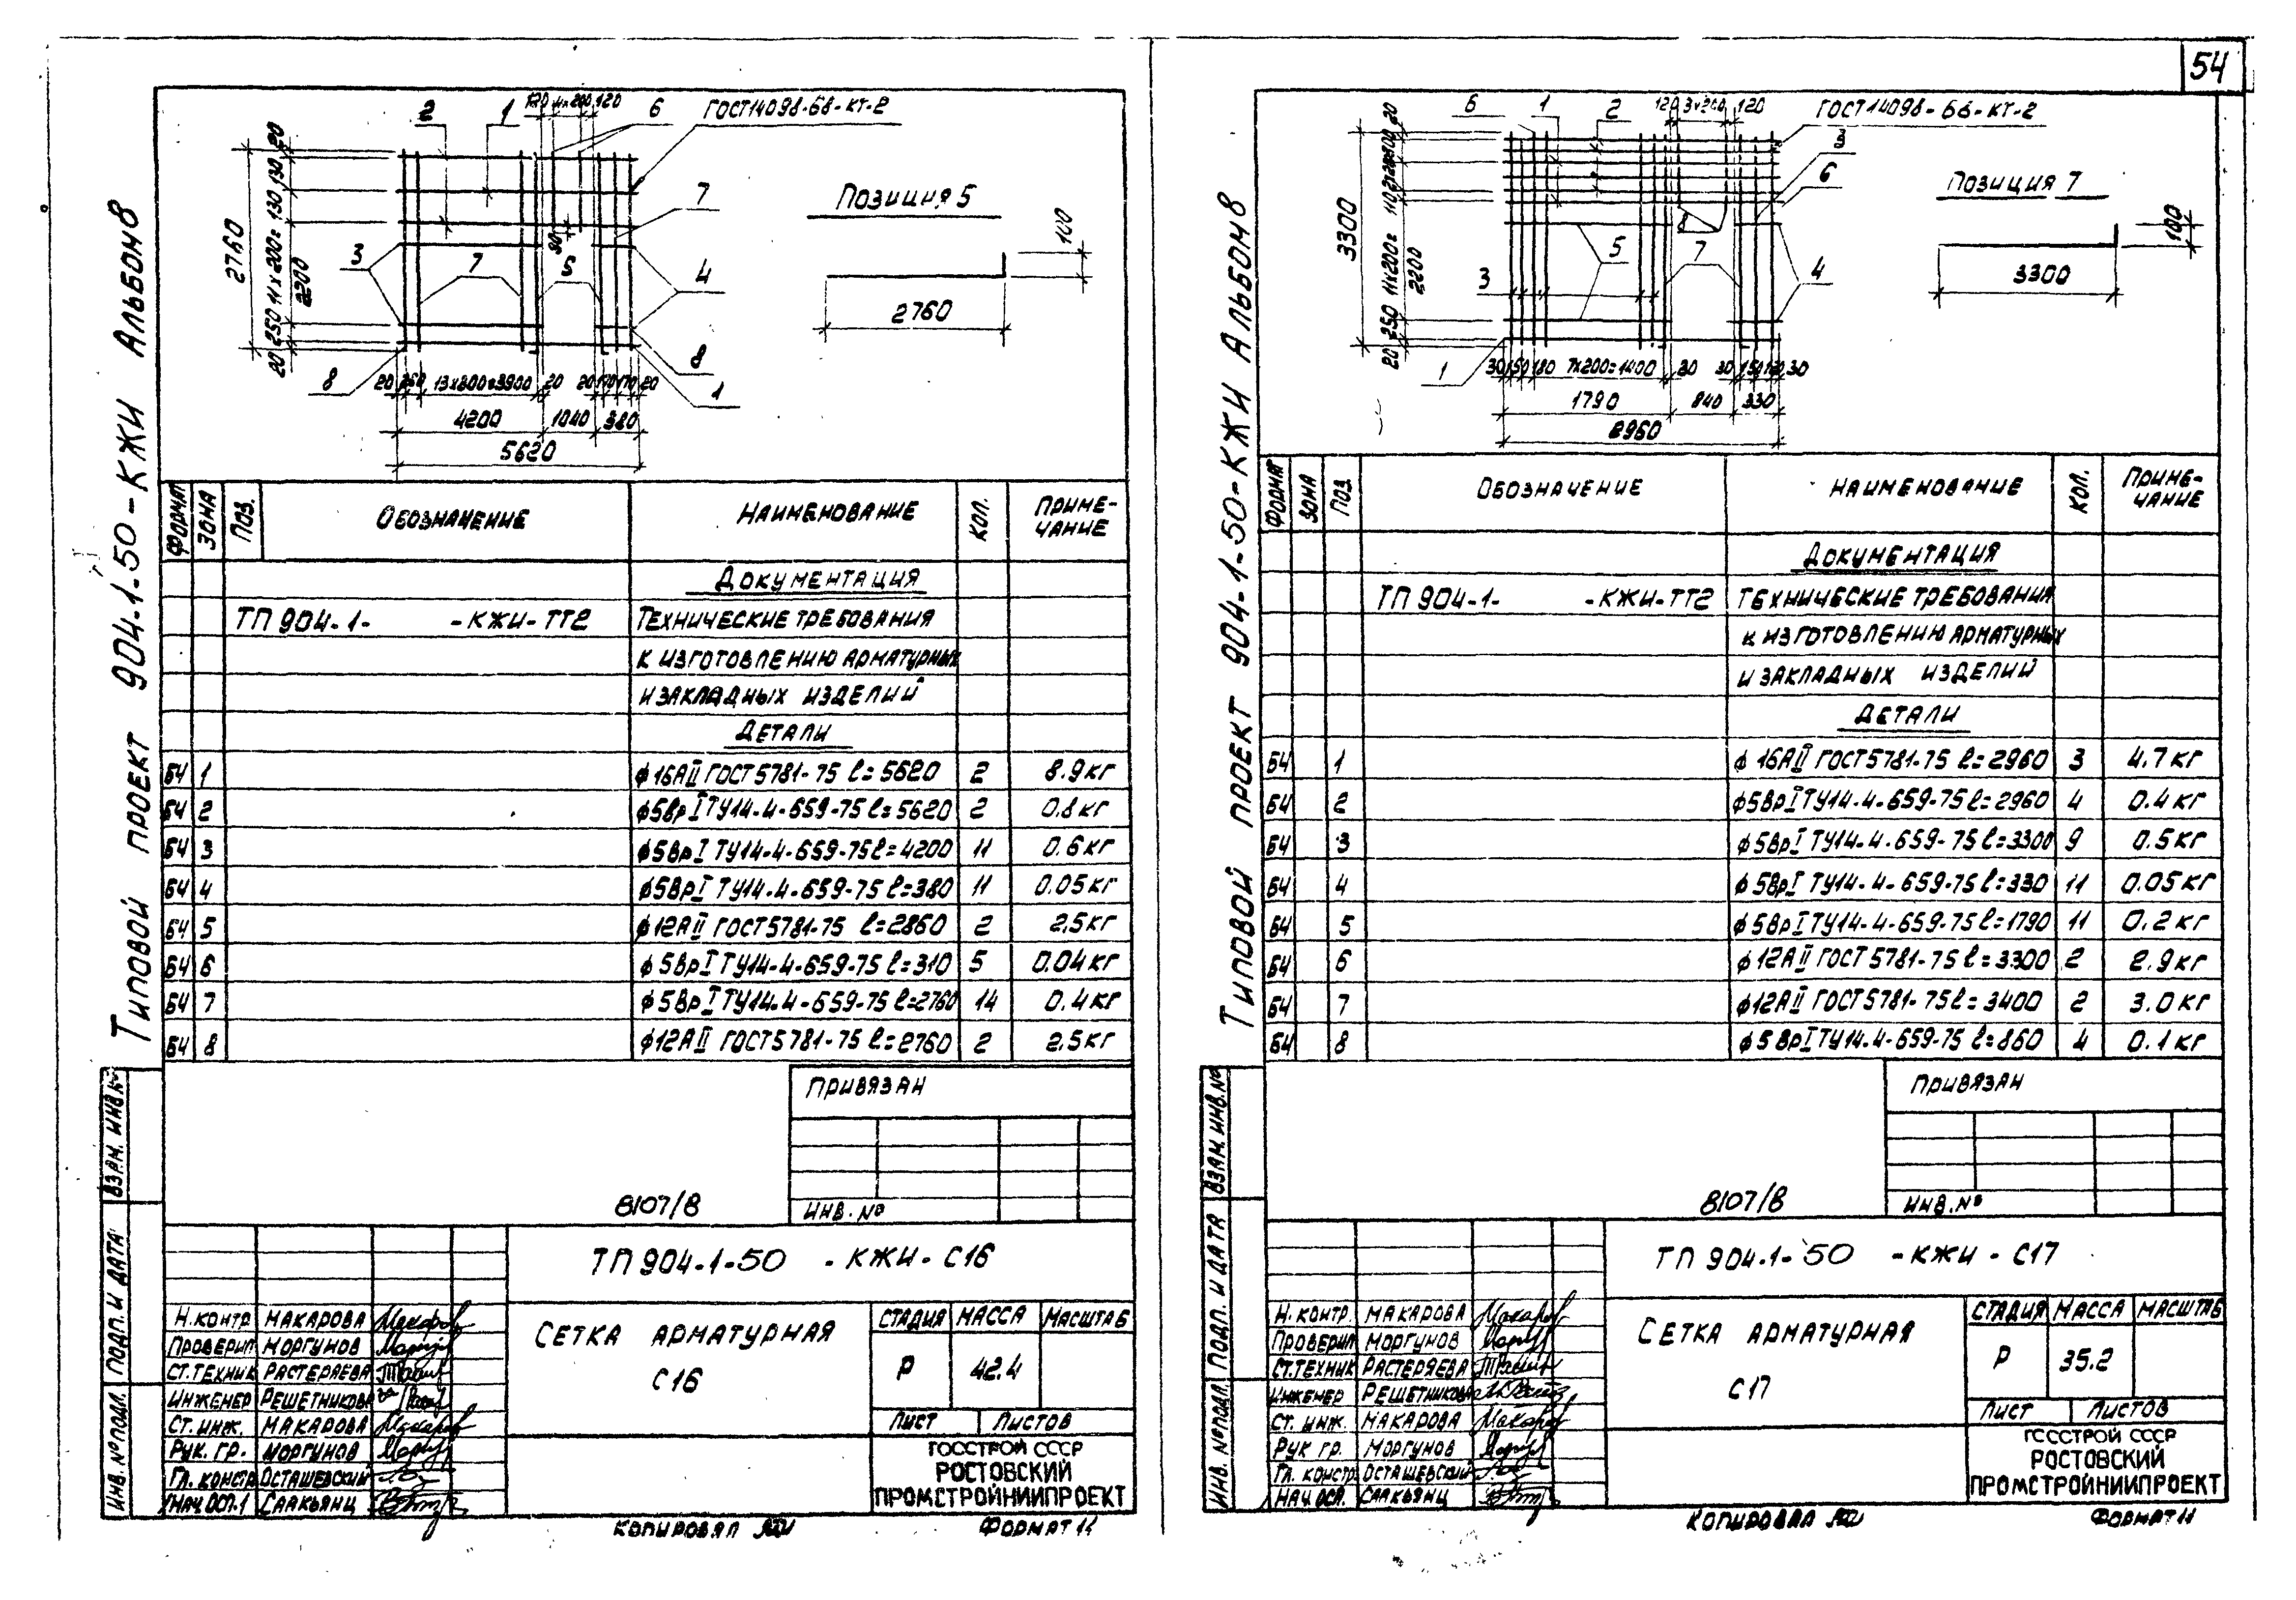 54
Типовой проект 904-1-50-КЖИ Альбом 8
2
1
120
4×200
120
6
ГОСТ 14098-68-КТ-2
Позиция 5
7
3
7
5
4
8
8
1
2760
20
130
130
11×200=
2200
250
20
30
100
2760
20
260
13×300=3900
20
20
170
170
20
4200
1040
380
5620
Формат
Зона
Поз.
Обозначение
Наименование
Кол.
Приме-
чание
Документация
ТП 904-1- -КЖИ-ТТ2 Технические требования
к изготовлению арматурных
и закладных изделий
Детали
БЧ 1 ф16АII ГОСТ 5781-75 ℓ=5620 2 8.9кг
БЧ 2 ф5ВрI ТУ14-4-659-75 ℓ=5620 2 0.8кг
БЧ 3 ф5ВрI ТУ14-4-659-75 ℓ=4200 11 0.6кг
БЧ 4 ф5ВрI ТУ14-4-659-75 ℓ=380 11 0.05кг
БЧ 5 ф12АII ГОСТ 5781-75 ℓ=2860 2 2.5кг
БЧ 6 ф5ВрI ТУ14-4-659-75 ℓ=310 5 0.04кг
БЧ 7 ф5ВрI ТУ14-4-659-75 ℓ=2760 14 0.4кг
БЧ 8 ф12АII ГОСТ 5781-75 ℓ=2760 2 2.5кг
Привязан
Инв. №
8107/8
ТП 904-1-50 -КЖИ-С16
Сетка арматурная
С16
Стадия Масса Масштаб
Р 42.4
Лист Листов
Госстрой СССР
Ростовский
Промстройниипроект
Н.контр. Макарова
Проверил Моргунов
Ст.техник Растеряева
Инженер Решетникова
Ст. инж. Макарова
Рук. гр. Моргунов
Гл. констр. Осташевский
Нач. отд. Саакьянц
Взам. инв. №
Подп. и дата
Инв. № подл.
Копировал
Формат 11
Типовой проект 904-1-50-КЖИ Альбом 8
6
1
2
120
3×200
120
ГОСТ 14098-68-КТ-2
3
6
Позиция 7
5
7
8
3
4
1
3300
20
11×200=
2200
250
20
100
3300
30
150
180
7×200=1400
30
30
150
120
30
1790
840
330
2960
Формат
Зона
Поз.
Обозначение
Наименование
Кол.
Приме-
чание
Документация
ТП 904-1- -КЖИ-ТТ2 Технические требования
к изготовлению арматурных
и закладных изделий
Детали
БЧ 1 ф16АII ГОСТ 5781-75 ℓ=2960 3 4.7кг
БЧ 2 ф5ВрI ТУ14-4-659-75 ℓ=2960 4 0.4кг
БЧ 3 ф5ВрI ТУ14-4-659-75 ℓ=3300 9 0.5кг
БЧ 4 ф5ВрI ТУ14-4-659-75 ℓ=330 11 0.05кг
БЧ 5 ф5ВрI ТУ14-4-659-75 ℓ=1790 11 0.2кг
БЧ 6 ф12АII ГОСТ 5781-75 ℓ=3300 2 2.9кг
БЧ 7 ф12АII ГОСТ 5781-75 ℓ=3400 2 3.0кг
БЧ 8 ф5ВрI ТУ14-4-659-75 ℓ=860 4 0.1кг
Привязан
Инв. №
8107/8
ТП 904-1-50 -КЖИ-С17
Сетка арматурная
С17
Стадия Масса Масштаб
Р 35.2
Лист Листов
Госстрой СССР
Ростовский
Промстройниипроект
Н.контр. Макарова
Проверил Моргунов
Ст.техник Растеряева
Инженер Решетникова
Ст. инж. Макарова
Рук гр. Моргунов
Гл. констр. Осташевский
Нач. отд. Саакьянц
Взам. инв. №
Подп. и дата
Инв. № подл.
Копировал
Формат 11